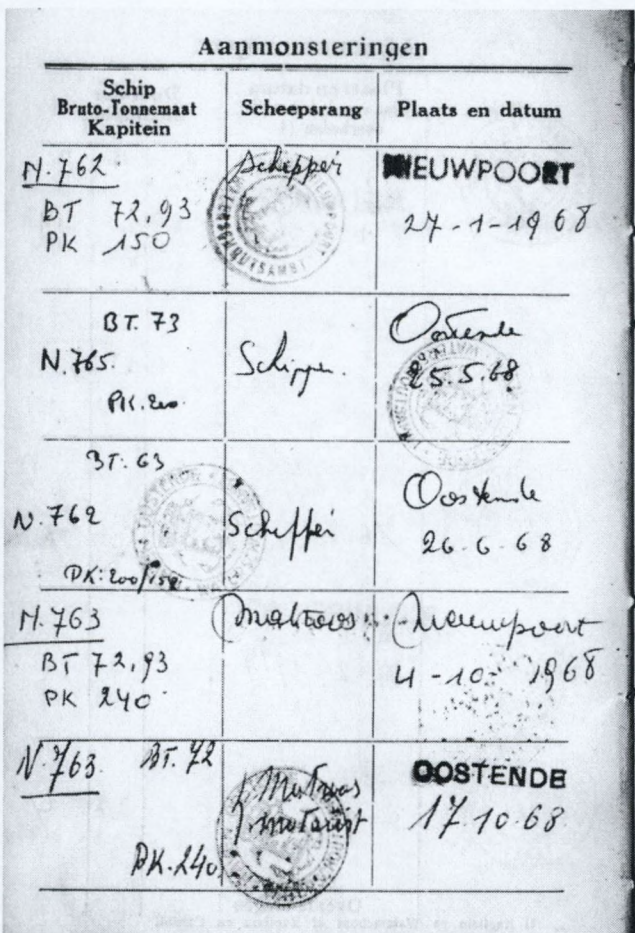 Aanmonsteringen
Schip
Bruto-Tonnemaat
Kapitein
Scheepsrang
Plaats en datum
N. 762
BT 72,93
PK 150
Schipper
NIEUWPOORT
27-1-1968
BT. 73
N. 765.
PK. 200
Schipper.
Oostende
25.5.68
BT. 63
N. 762
PK: 200/150
Schipper
Oostende
26.6.68
N. 763
BT 72,93
PK 240
Matroos
Nieuwpoort
4-10-1968
N 763
BT. 72
PK. 240
Matroos
motorist
OOSTENDE
17.10.68